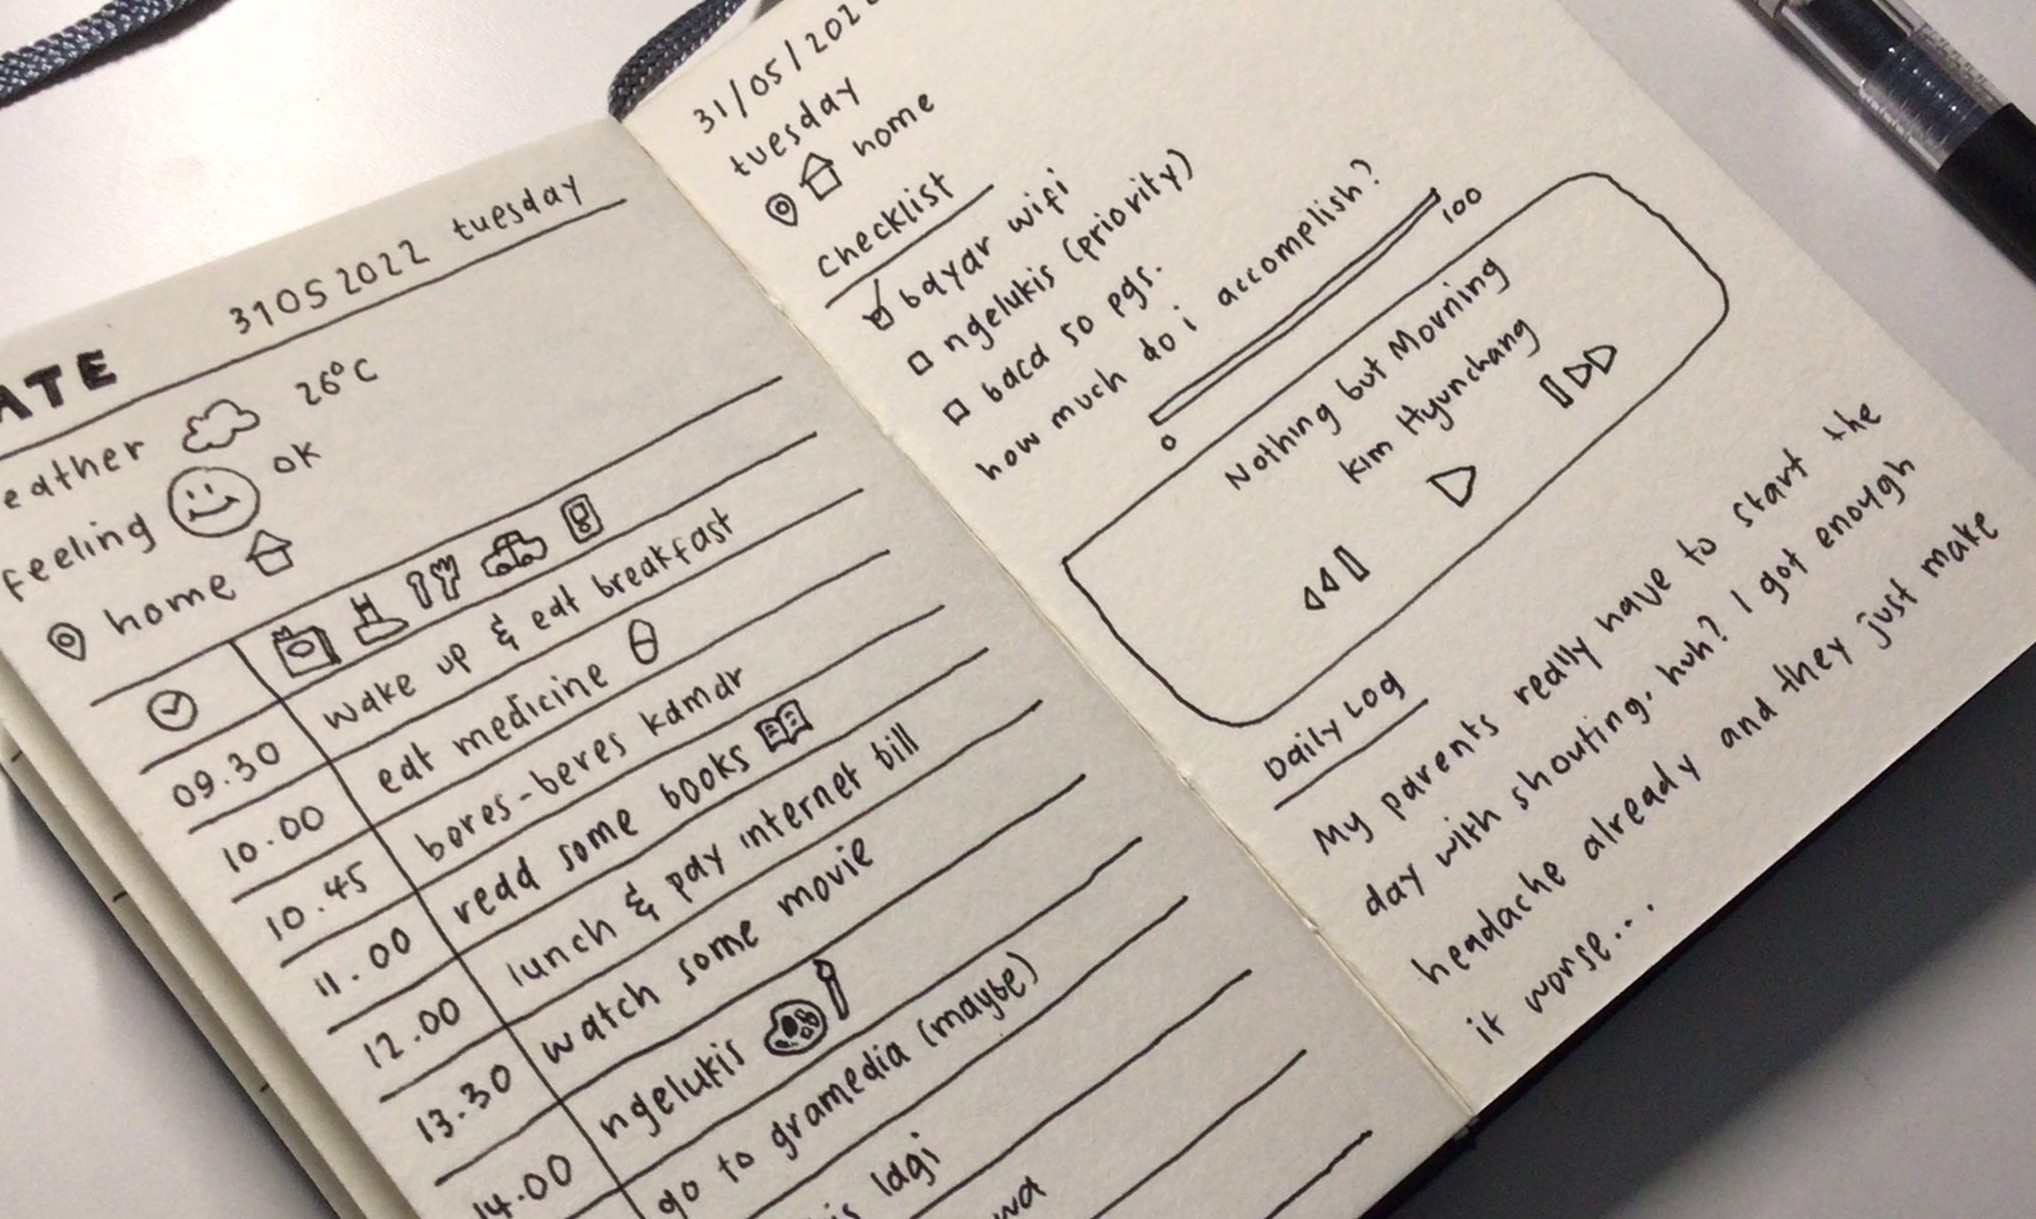 ATE 31052022 tuesday
eather 26°C
feeling ok
home
09.30 wake up & eat breakfast
10.00 eat medicine
10.45 beres-beres kamar
11.00 read some books
12.00 lunch & pay internet bill
13.30 watch some movie
14.00 ngelukis
go to gramedia (maybe)
is lagi
wa
31/05/202
tuesday
home
checklist
bayar wifi
ngelukis (priority)
baca 50 pgs.
how much do i accomplish?
0 100
Nothing but Morning
Kim Hyunchang
Daily Log
My parents really have to start the
day with shouting, huh? I got enough
headache already and they just make
it worse...